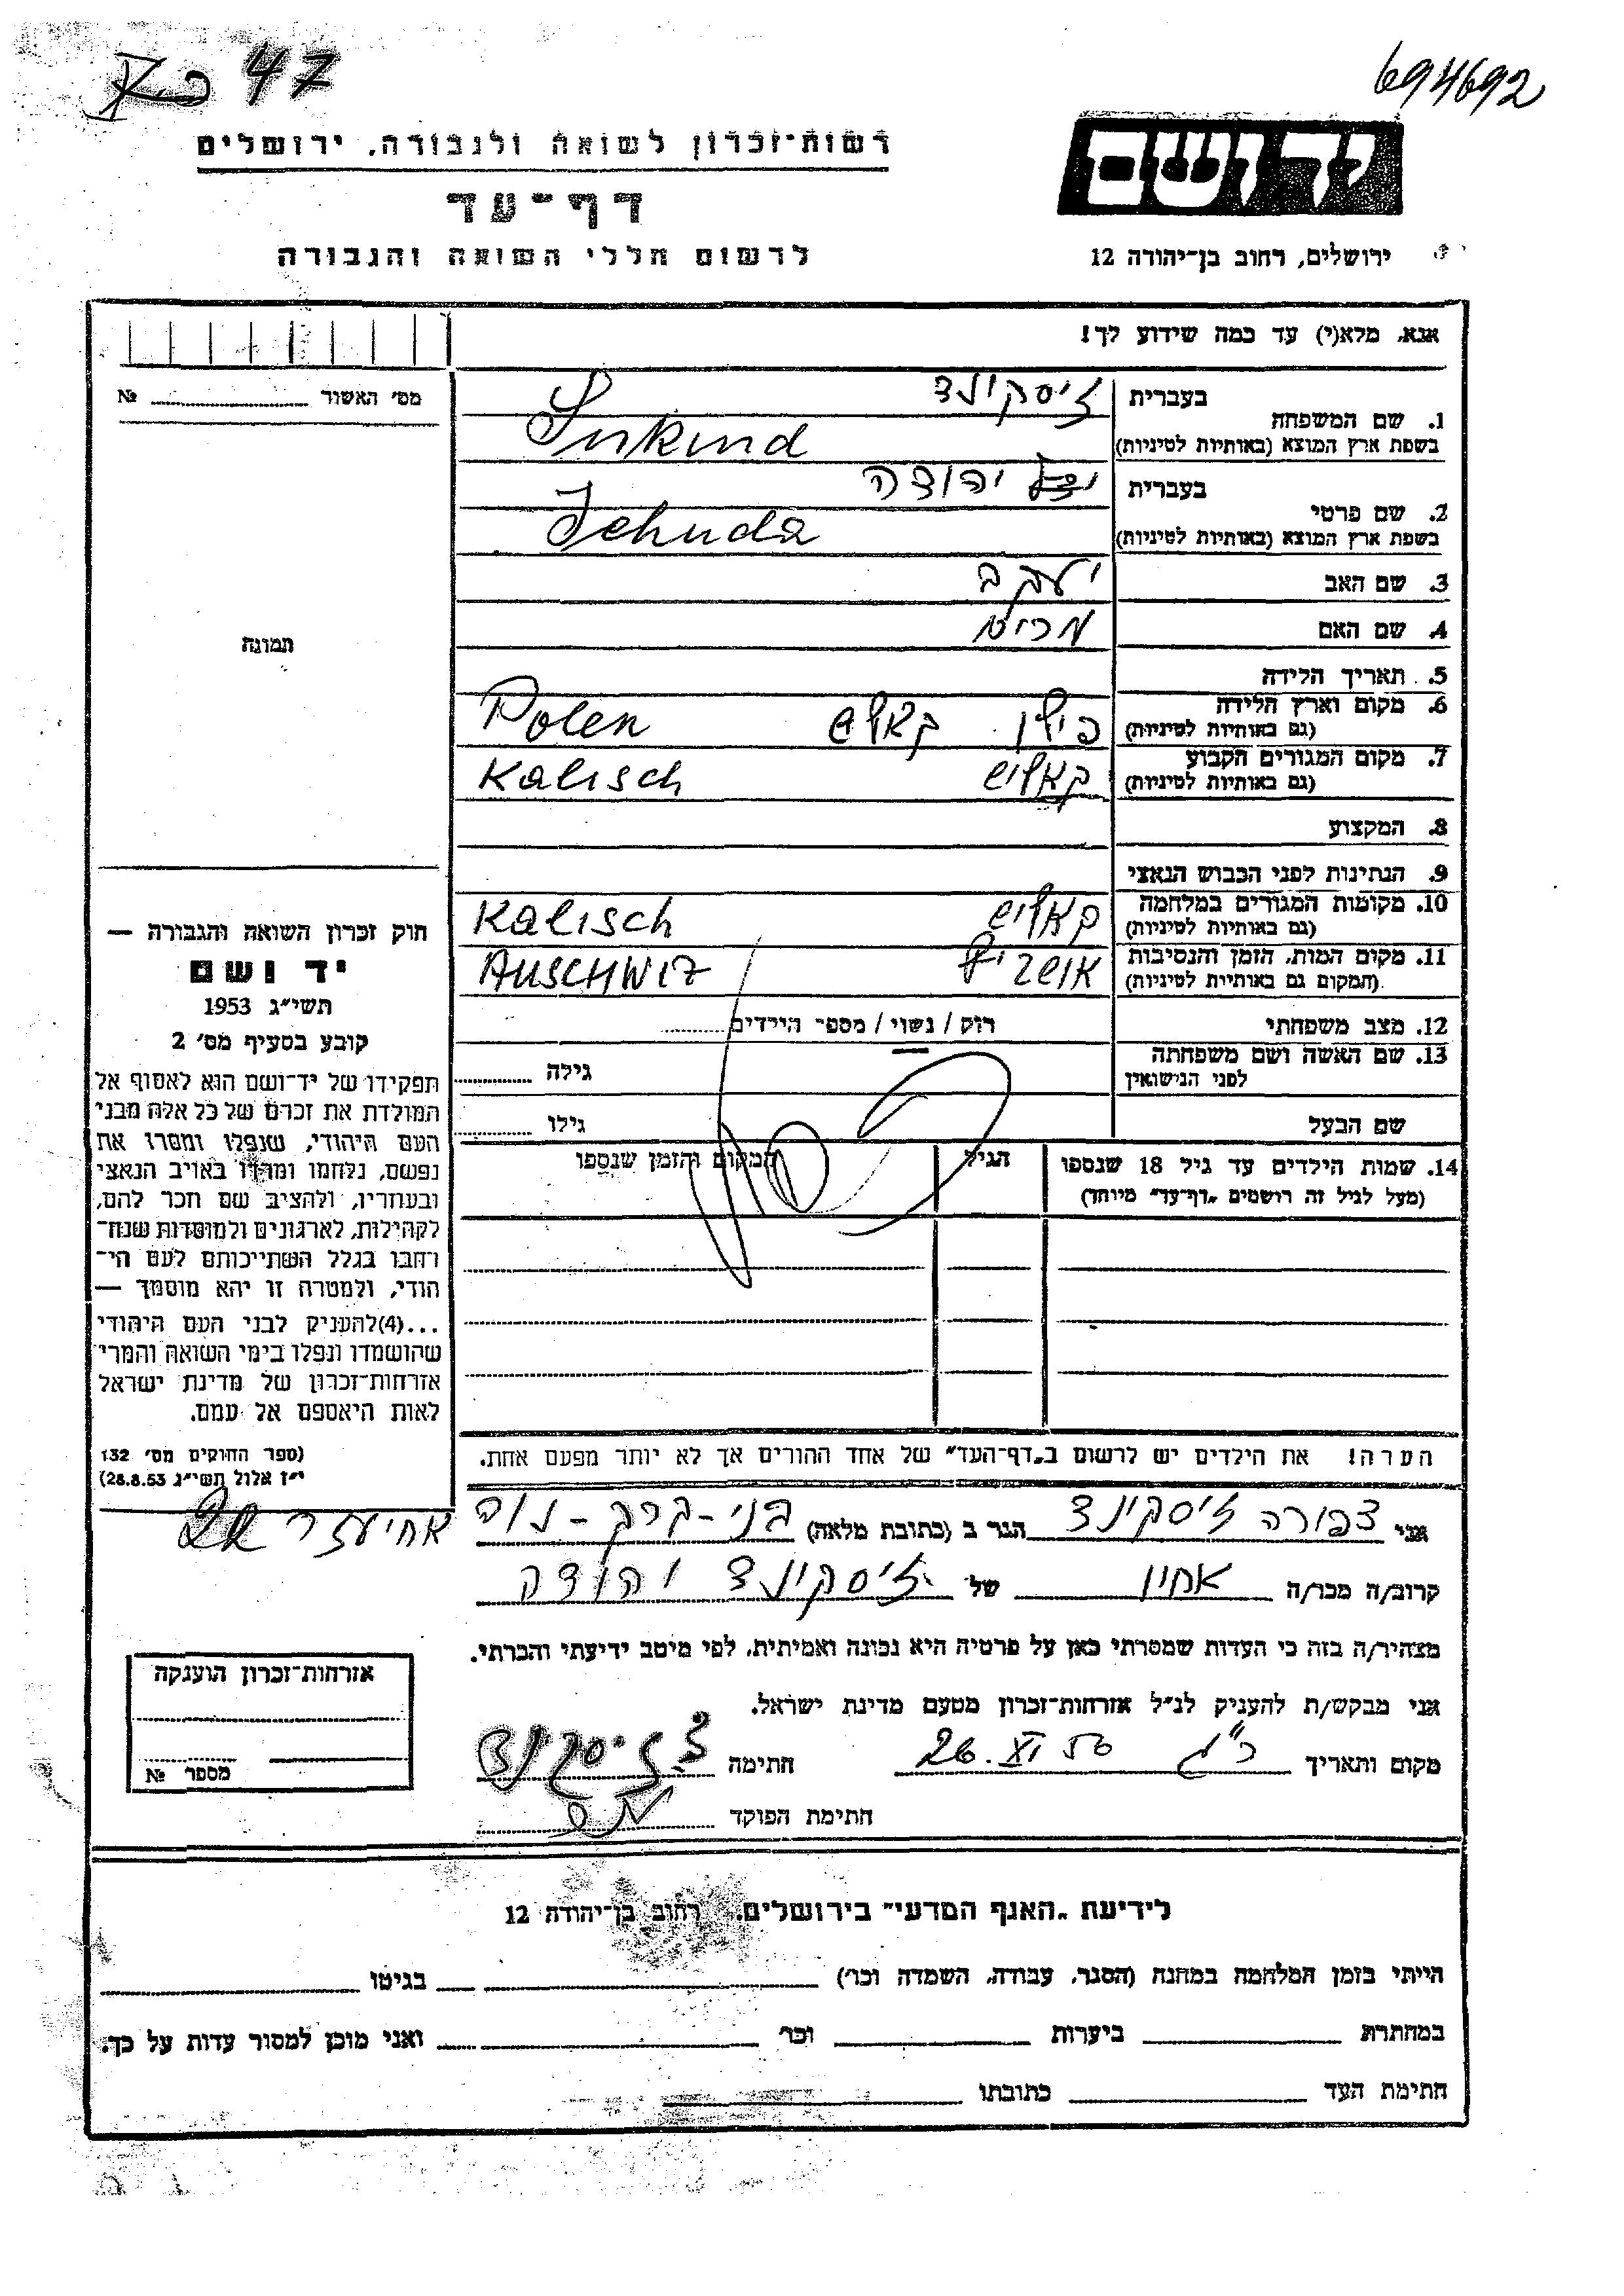 47
694692
רשות־זכרון לשואה ולגבורה, ירושלים
יד ושם
דף־עד
לרשום חללי השואה והגבורה
ירושלים, רחוב בן־יהודה 12
אנא, מלא(י) עד כמה שידוע לך!
מס׳ האשור № 
1. שם המשפחה בעברית זיסקינד
בשפת ארץ המוצא (באותיות לטיניות)
2. שם פרטי בעברית יהודה
בשפת ארץ המוצא (באותיות לטיניות) Jehuda
3. שם האב יעקב
4. שם האם
תמונה
5. תאריך הלידה
6. מקום וארץ הלידה פולין קאליש Polen
(גם באותיות לטיניות)
7. מקום המגורים הקבוע קאליש Kalisch
(גם באותיות לטיניות)
8. המקצוע
9. הנתינות לפני הכבוש הנאצי
10. מקומות המגורים במלחמה קאליש Kalisch
(גם באותיות לטיניות)
11. מקום המות, הזמן והנסיבות AUSCHWIZ
(המקום גם באותיות לטיניות)
12. מצב משפחתי רווק / נשוי / מספר הילדים
13. שם האשה ושם משפחתה גילה
לפני הנישואין
שם הבעל גילו
14. שמות הילדים עד גיל 18 שנספו הגיל המקום והזמן שנספו
(מעל לגיל זה רושמים „דף־עד״ מיוחד)
הערה! את הילדים יש לרשום ב„דף־העד״ של אחד ההורים אך לא יותר מפעם אחת.
חוק זכרון השואה והגבורה —
יד ושם
תשי״ג 1953
קובע בסעיף מס׳ 2
תפקידו של יד־ושם הוא לאסוף אל
המולדת את זכרם של כל אלה מבני
העם היהודי, שנפלו ומסרו את
נפשם, נלחמו ומרדו באויב הנאצי
ובעוזריו, ולהציב שם וזכר להם,
לקהילות, לארגונים ולמוסדות שנח־
רחבו בגלל השתייכותם לעם הי־
הודי, ולמטרה זו יהא מוסמך —
...(4)להעניק לבני העם היהודי
שהושמדו ונפלו בימי השואה והמרי
אזרחות־זכרון של מדינת ישראל
לאות היאספם אל עמם.
(ספר החוקים מס׳ 132
י״ז אלול תשי״ג 28.8.53)
אני צפורה זיסקינד הגר ב (כתובת מלאה) בני־ברק־נוה אחיעזר 22
קרוב/ה מכר/ה של זיסקינד יהודה
מצהיר/ה בזה כי העדות שמסרתי כאן על פרטיה היא נכונה ואמיתית, לפי מיטב ידיעתי והכרתי.
אני מבקש/ת להעניק לנ״ל אזרחות־זכרון מטעם מדינת ישראל.
מקום ותאריך 26.XI 56 חתימה צ. זיסקינד
חתימת הפוקד
אזרחות־זכרון הוענקה
מספר №
לידיעת „האגף המדעי״ בירושלים, רחוב בן־יהודה 12
הייתי בזמן המלחמה במחנה (הסגר, עבודה, השמדה וכו׳) בגיטו
במחתרת ביערות וכו׳ ואני מוכן למסור עדות על כך.
חתימת העד כתובתו